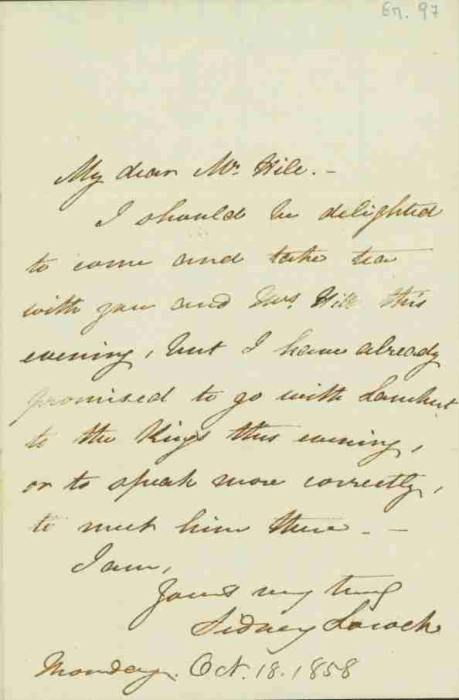 67. 97
My dear Mr. Hill. -
I should be delighted
to come and take tea
with you and Mrs. Hill this
evening, but I have already
promised to go with Lambert
to the Kings this evening,
or to speak more correctly,
to meet him there. -
I am,
Yours very truly
Sidney
Monday. Oct. 18. 1858